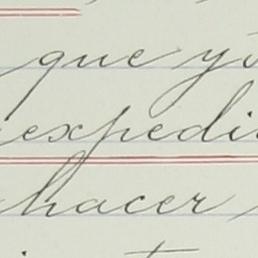 que yo
expedi
hacer